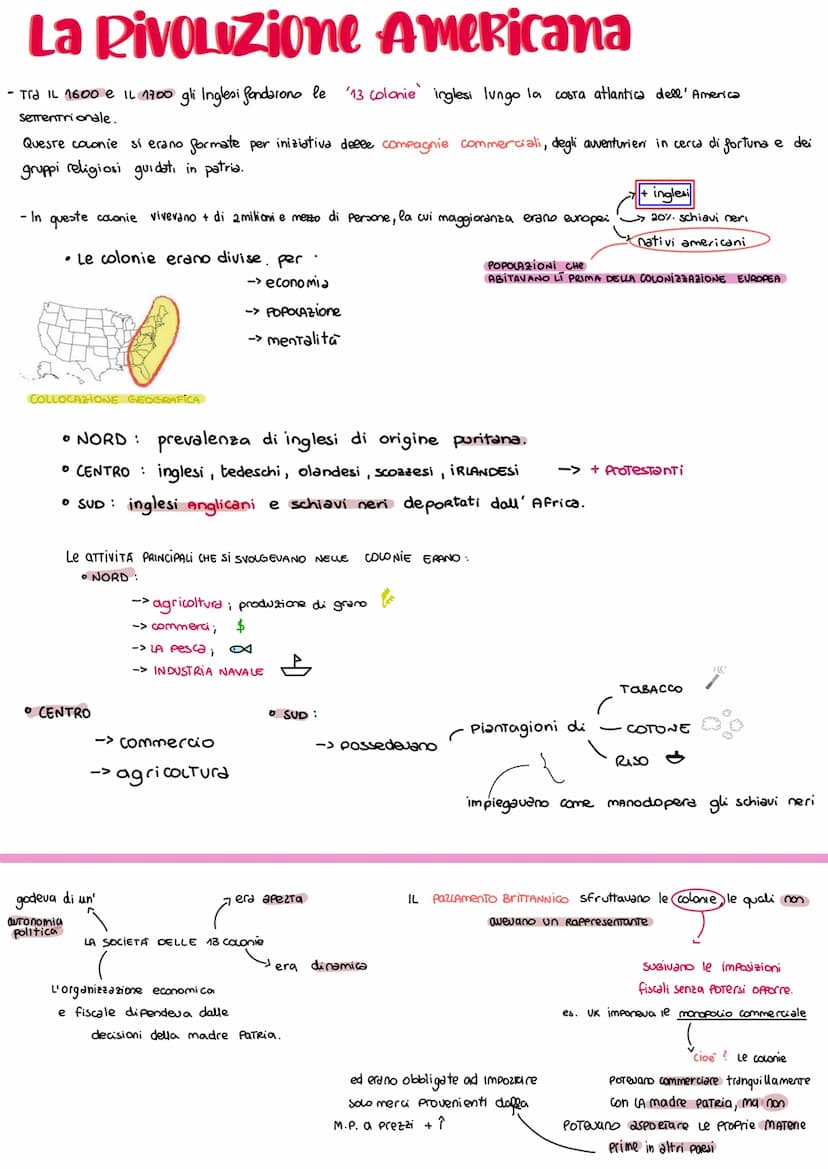 La Rivoluzione Americana
- Tra IL 1600 e IL 1700 gli Inglesi fondarono le '13 colonie` inglesi lungo la costa atlantica dell' America
settentrionale.
Queste colonie si erano formate per iniziativa delle compagnie commerciali, degli avventurieri in cerca di fortuna e dei
gruppi religiosi guidati in patria.
+ inglesi
- In queste colonie vivevano + di 2 milioni e mezzo di persone, la cui maggioranza erano europei
-> 20% schiavi neri
nativi americani
POPOLAZIONI CHE
ABITAVANO LÌ PRIMA DELLA COLONIZZAZIONE EUROPEA
• Le colonie erano divise per :
-> economia
-> POPOLAZIONE
-> mentalità
COLLOCAZIONE GEOGRAFICA
• NORD : prevalenza di inglesi di origine puritana.
• CENTRO : inglesi, tedeschi, olandesi, scozzesi, IRLANDESI -> + PROTESTANTI
• SUD : inglesi Anglicani e schiavi neri deportati dall' Africa.
Le ATTIVITÀ PRINCIPALI CHE SI SVOLGEVANO NELLE COLONIE ERANO :
• NORD :
-> agricoltura ; produzione di grano
-> commerci; $
-> LA pesca ;
-> INDUSTRIA NAVALE
• CENTRO
-> commercio
-> agricoltura
• SUD :
-> possedevano
Piantagioni di
TABACCO
COTONE
RISO
impiegavano come manodopera gli schiavi neri
godeva di un'
autonomia
politica
era aperta
LA SOCIETÀ DELLE 13 colonie
era dinamica
L'organizzazione economica
e fiscale dipendeva dalle
decisioni della madre PATRIA.
IL PARLAMENTO BRITTANNICO sfruttavano le colonie, le quali non
avevano un rappresentante
subivano le imposizioni
fiscali senza potersi opporre.
es. UK imponeva le monopolio commerciale
cioè ? Le colonie
potevano commerciare tranquillamente
con LA madre PATRIA, ma non
potevano asportare le proprie materie
prime in altri paesi
ed erano obbligate ad importare
solo merci provenienti dalla
M.P. a prezzi + ↑